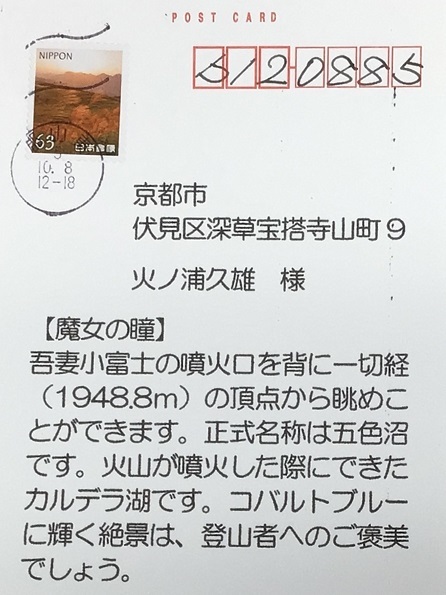 POST CARD
NIPPON
612-0885
63 日本郵便
10.8
12-18
京都市
伏見区深草宝塔寺山町9
火ノ浦久雄 様
【魔女の瞳】
吾妻小富士の噴火口を背に一切経
（1948.8m）の頂点から眺めこ
とができます。正式名称は五色沼
です。火山が噴火した際にできた
カルデラ湖です。コバルトブルー
に輝く絶景は、登山者へのご褒美
でしょう。